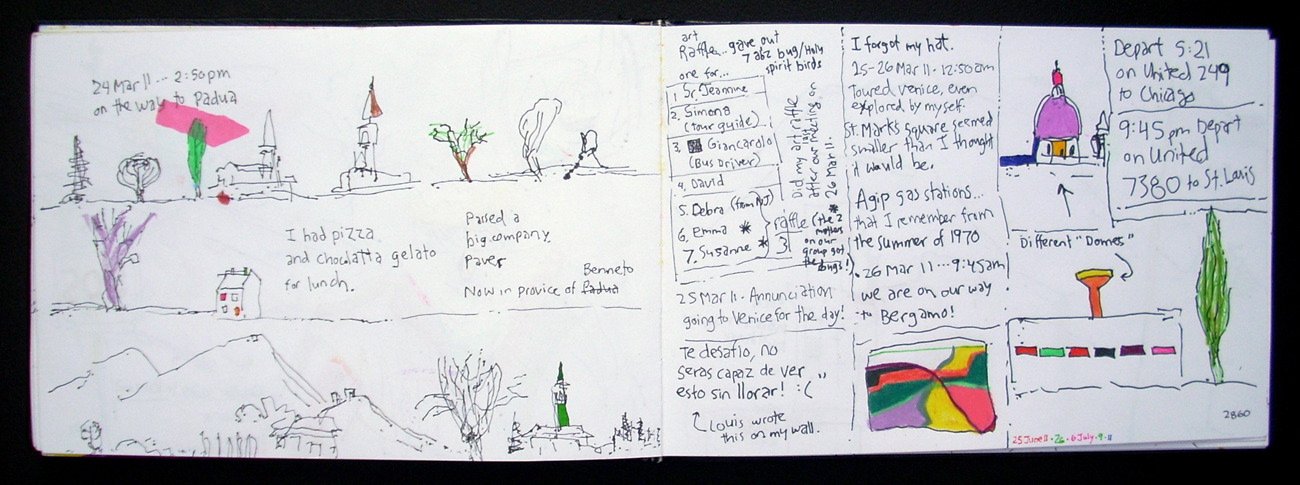 24 Mar 11 ... 2:50pm
on the way to Padua
I had pizza
and choclatta gelato
for lunch.
Passed a
big company,
Paver
Benneto
Now in provice of Padua
art
Raffle... gave out
7 abz bug/Holy
spirit birds
one for...
1. Sr. Jeannine
2. Simona
(tour guide)
3. Giancarolo
(Bus Driver)
4. David
5. Debra (from NJ)
6. Emma *
7. Susanne *
raffle (the 2
3
mothers
on our
group got
the bugs!)
Did my art raffle
after our meeting on
26 Mar 11.
*
25 Mar 11 · Annunciation
going to Venice for the day!
Te desafio, no
seras capaz de ver
esto sin llorar! :(
Louis wrote
this on my wall.
I forgot my hat.
25-26 Mar 11 · 12:50am
Toured Venice, even
explored by myself.
St. Marks square seemed
smaller than I thought
it would be.
Agip gas stations...
that I remember from
the summer of 1970
· 26 Mar 11 ... 9:45am
we are on our way
to Bergamo!
Different "Domes"
Depart 5:21
on United 249
to Chicago
9:45 pm Depart
on United
7380 to St. Louis
2860
25 June 11 · 26 · 6 July · 9 · 11